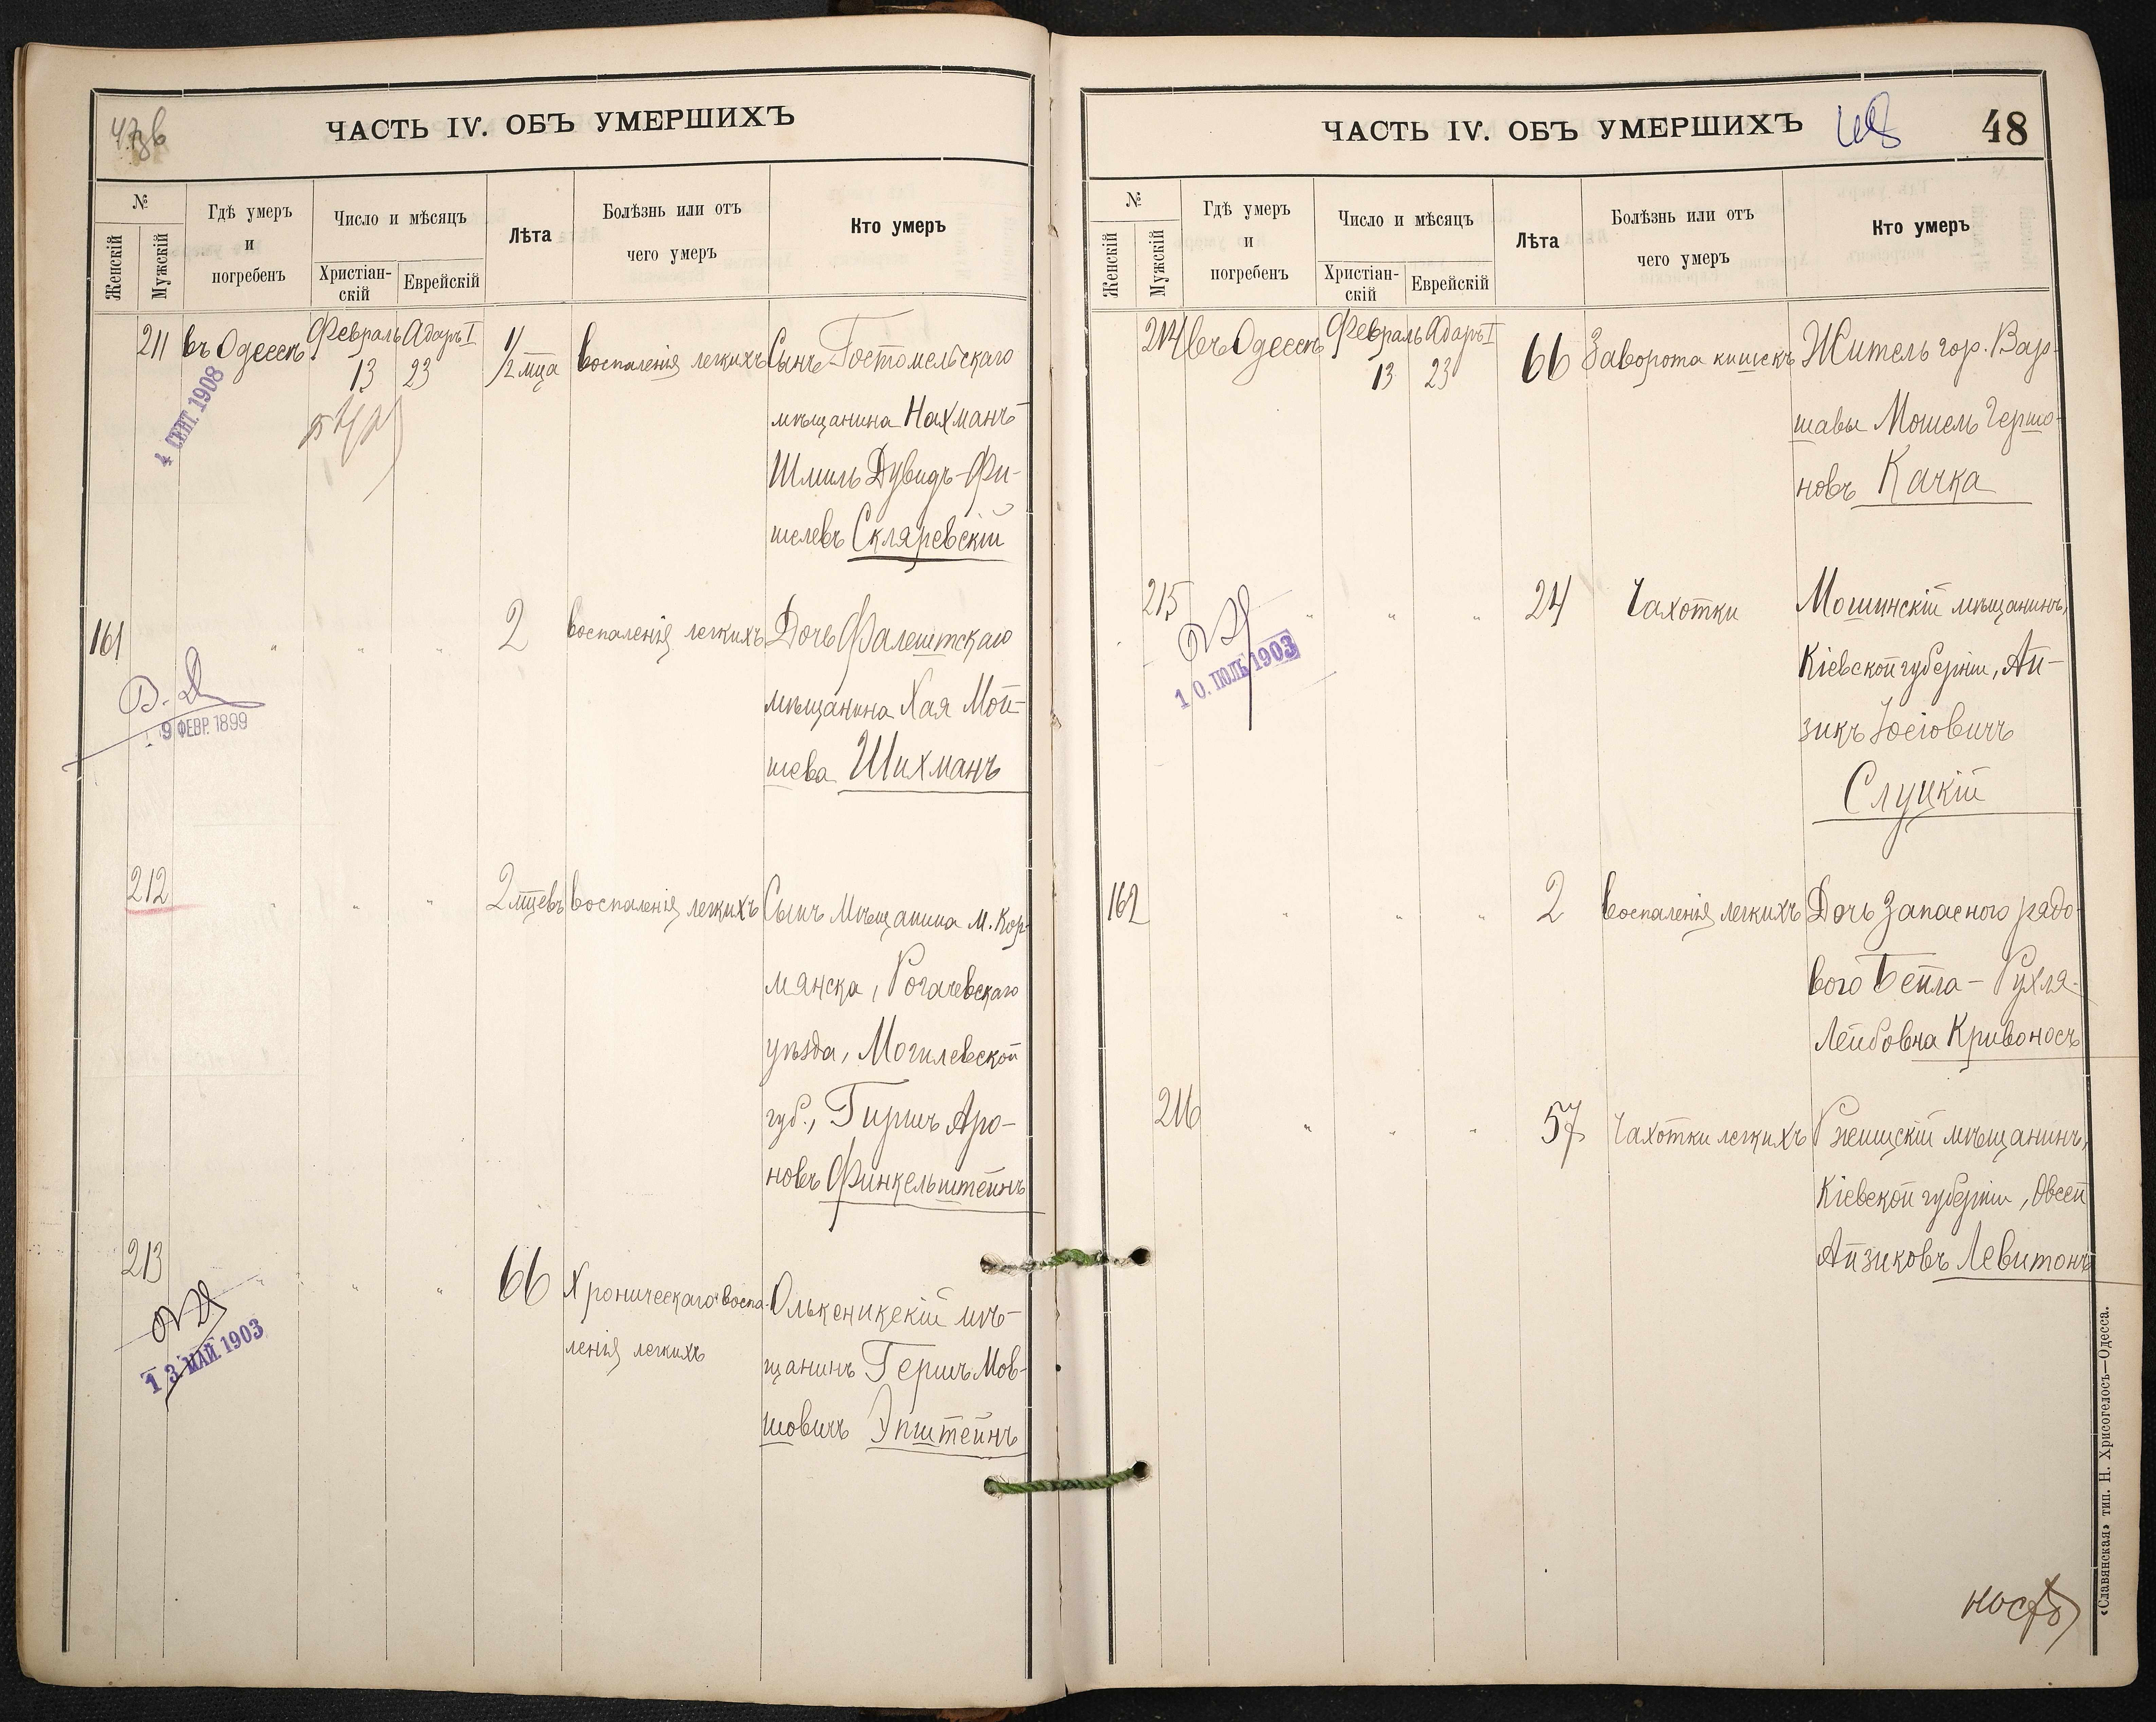 ЧАСТЬ IV. ОБЪ УМЕРШИХЪ
№
Женскій
Мужскій
Гдѣ умеръ
и
погребенъ
Число и мѣсяцъ
Христіан-
скій
Еврейскій
Лѣта
Болѣзнь или отъ
чего умеръ
Кто умеръ
211 въ Одессѣ Февраль Адаръ I 1/2 мца воспаленія легкихъ Сынъ Гостомельскаго
13 23
4 СЕНТ. 1908
мѣщанина Нахманъ
Шмиль Дувидъ-Фи-
шелевъ Скляревскій
161 " " " 2 воспаленія легкихъ Дочь Фалештскаго
мѣщанина Хая Мой-
9 ФЕВР. 1899
шева Шихманъ
212 " " " 2 мцевъ воспаленія легкихъ Сынъ мѣщанина м. Кор-
мянска, Рогачевскаго
уѣзда, Могилевской
губ., Гиршъ Аро-
новъ Финкельштейнъ
213 " " " 66 Хроническаго воспа- Олькеникскій мѣ-
ленія легкихъ
щанинъ Гершъ Мов-
13 МАЙ 1903
шовичъ Эпштейнъ
ЧАСТЬ IV. ОБЪ УМЕРШИХЪ
48
№
Женскій
Мужскій
Гдѣ умеръ
и
погребенъ
Число и мѣсяцъ
Христіан-
скій
Еврейскій
Лѣта
Болѣзнь или отъ
чего умеръ
Кто умеръ
214 въ Одессѣ Февраль Адаръ I 66 Заворота кишекъ Житель гор. Вар-
13 23
шавы Мошель Гершо-
новъ Качка
215 " " " 24 Чахотки Мошинскій мѣщанинъ,
Кіевской губерніи, Ай-
10. ІЮЛЬ 1903
зикъ Іосіовичъ
Слуцкій
162 " " " 2 воспаленія легкихъ Дочь запасного рядо-
вого Бейла-Рухля-
Лейбовна Кривоносъ
216 " " " 57 Чахотки легкихъ Ржищскій мѣщанинъ,
Кіевской губерніи, Овсей
Айзиковъ Левитонъ
«Славянская» тип. Н. Хрисогелосъ—Одесса.